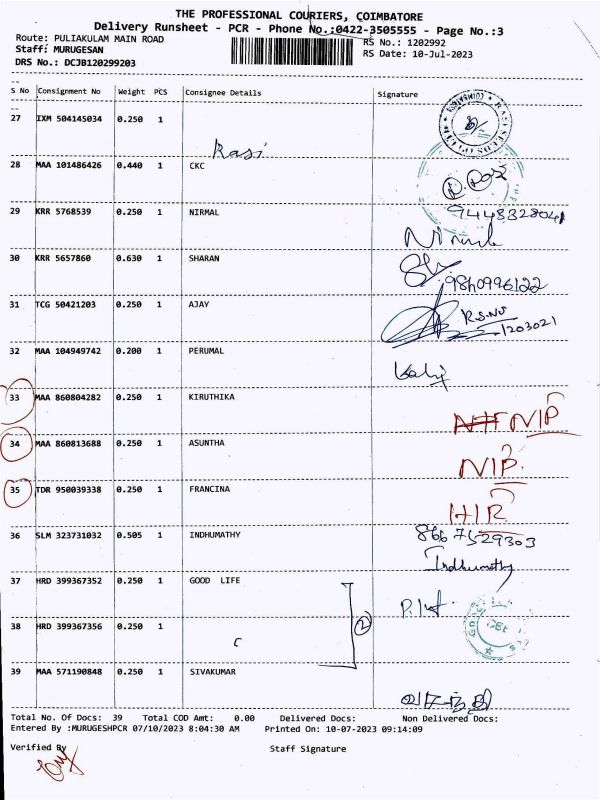 THE PROFESSIONAL COURIERS, COIMBATORE
Delivery Runsheet - PCR - Phone No.:0422-3505555 - Page No.:3
Route: PULIAKULAM MAIN ROAD RS No.: 1202992
Staff: MURUGESAN RS Date: 10-Jul-2023
DRS No.: DCJB120299203
S No Consignment No Weight PCS Consignee Details Signature
27 IXM 504145034 0.250 1
Rasi
28 MAA 101486426 0.440 1 CKC
29 KRR 5768539 0.250 1 NIRMAL 9448328041
30 KRR 5657860 0.630 1 SHARAN
9840996122
31 TCG 50421203 0.250 1 AJAY R.S.NO
1203021
32 MAA 104949742 0.200 1 PERUMAL
33 MAA 860804282 0.250 1 KIRUTHIKA
NIP
34 MAA 860813688 0.250 1 ASUNTHA
NIP.
35 TDR 950039338 0.250 1 FRANCINA
HIR
36 SLM 323731032 0.505 1 INDHUMATHY 8667529303
Indhumathy
37 HRD 399367352 0.250 1 GOOD LIFE
2
38 HRD 399367356 0.250 1
39 MAA 571190848 0.250 1 SIVAKUMAR
Total No. Of Docs: 39 Total COD Amt: 0.00 Delivered Docs: Non Delivered Docs:
Entered By :MURUGESHPCR 07/10/2023 8:04:30 AM Printed On: 10-07-2023 09:14:09
Verified By Staff Signature